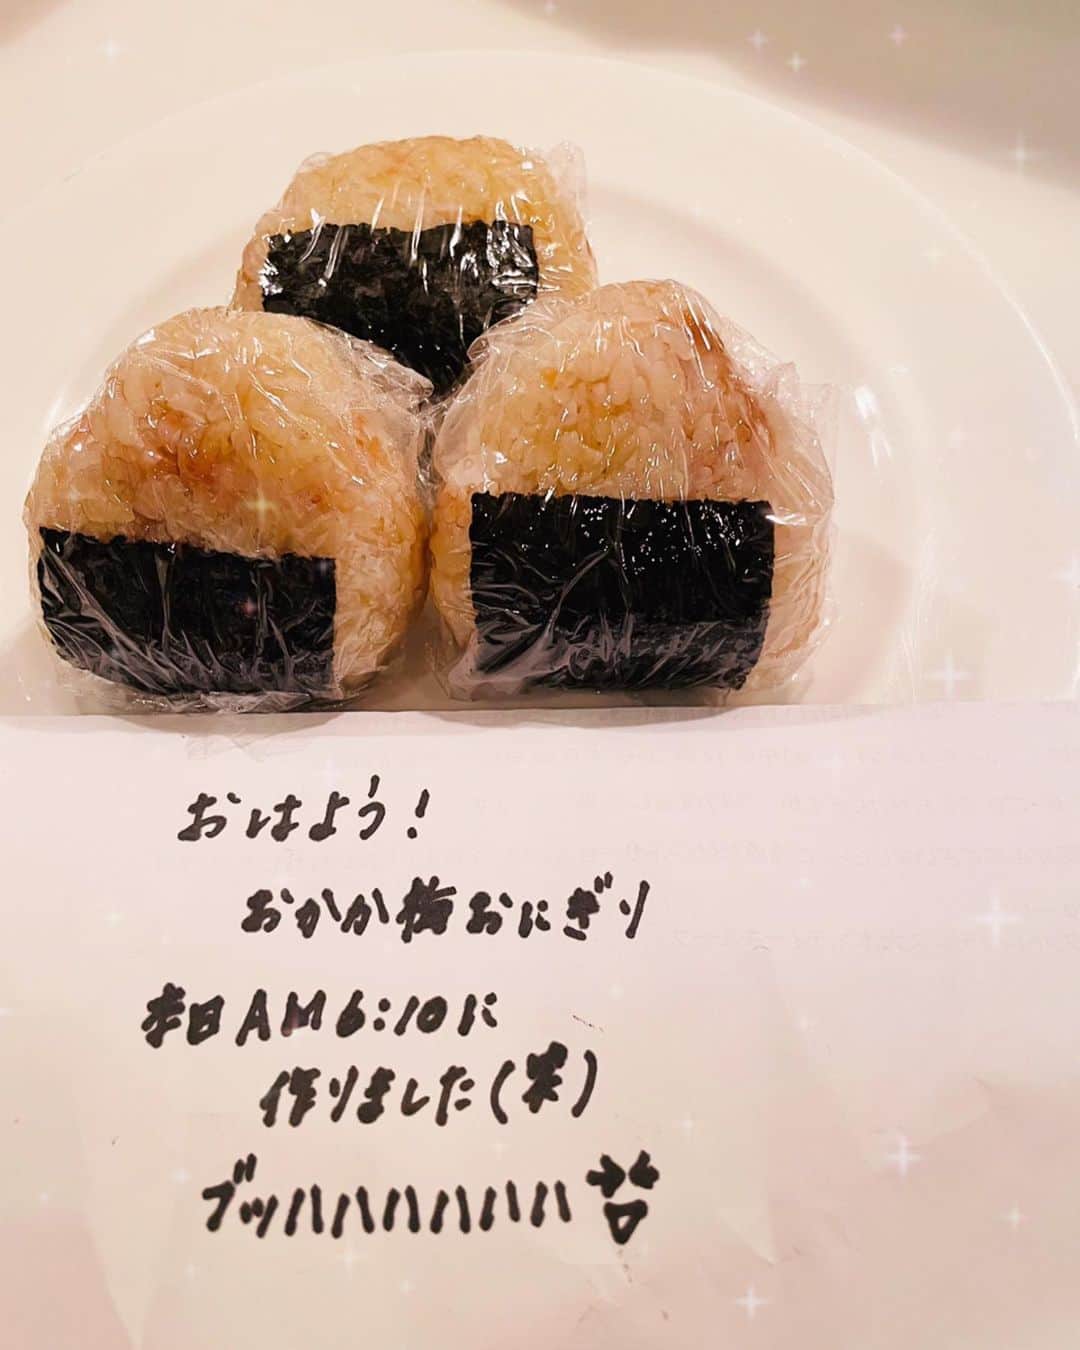 おはよう!
おかか梅おにぎり
本日AM6:10に
作りました(笑)
ブッハハハハハハ苔